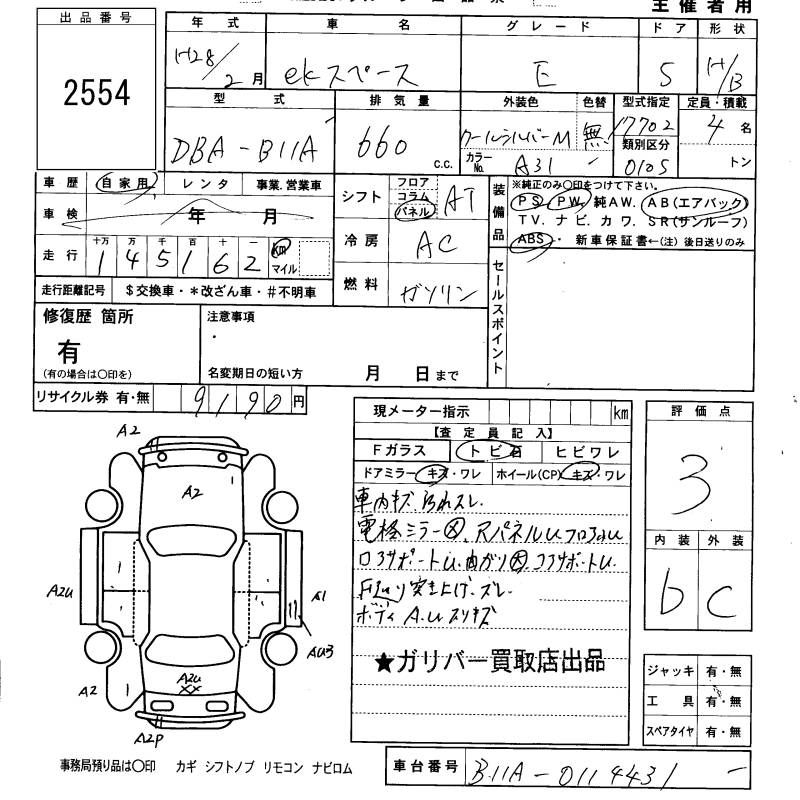 主催者用
出品番号
2554
年式 車名 グレード ドア 形状
H28/2月 ekスペース E 5 H/B
型式 排気量 外装色 色替 型式指定 定員・積載
DBA-B11A 660 c.c. クールシルバーM 無 17702 4名
カラーNo. A31 類別区分 0105 トン
車歴 自家用 レンタ 事業.営業車
車検 年 月
走行 十万 万 千 百 十 一
1 4 5 1 6 2 km マイル
走行距離記号 $交換車・*改ざん車・#不明車
シフト フロア コラム パネル AT
冷房 AC
燃料 ガソリン
装備品 ※純正のみ○印をつけて下さい。
PS. PW. 純AW. AB(エアバック)
TV. ナビ. カワ. SR(サンルーフ)
ABS・ 新車保証書←(注) 後日送りのみ
セールスポイント
修復歴 箇所 注意事項
有
(有の場合は○印を) 名変期日の短い方 月 日まで
リサイクル券 有・無 9190円
現メーター指示 km
【査定員記入】
Fガラス トビ石 ヒビワレ
ドアミラー キズ・ワレ ホイール(CP) キズ・ワレ
車内キズ.汚れスレ.
F廻り突き上げ.ズレ
ボディA.Uスリキズ
★ガリバー買取店出品
評価点
3
内装 外装
b C
ジャッキ 有・無
工具 有・無
スペアタイヤ 有・無
A2
A2
A2U
A1
AU3
A2
A2U
XX
A2P
事務局預り品は○印 カギ シフトノブ リモコン ナビロム
車台番号 B11A-0114431